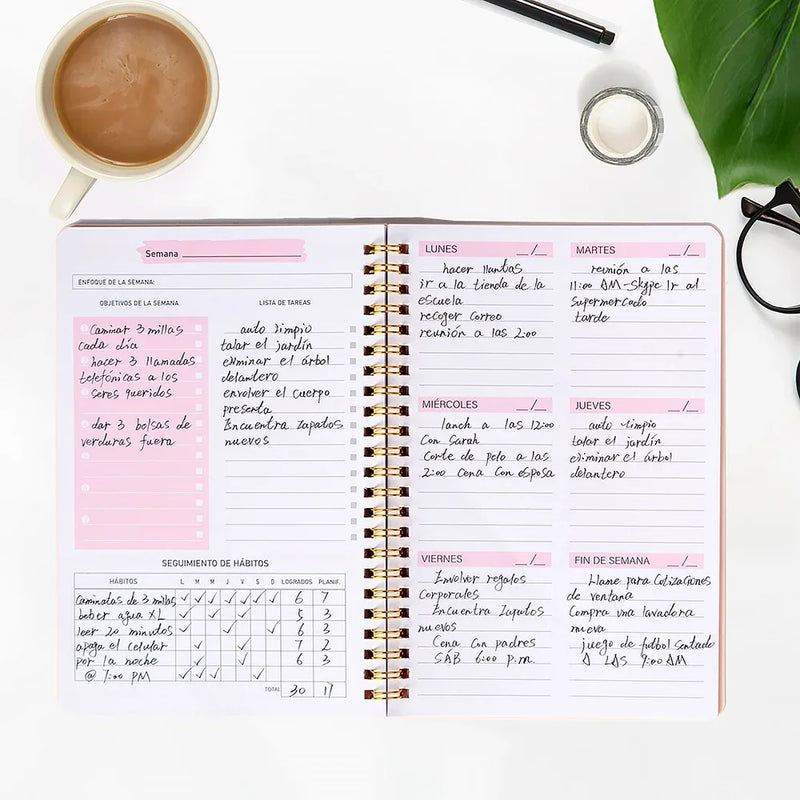 Semana
ENFOQUE DE LA SEMANA:
OBJETIVOS DE LA SEMANA
Caminar 3 millas
cada día
hacer 3 llamadas
telefónicas a los
seres queridos
dar 3 bolsas de
verduras fuera
LISTA DE TAREAS
auto limpio
talar el jardín
eliminar el árbol
delantero
envolver el cuerpo
presenta
Encuentra zapatos
nuevos
SEGUIMIENTO DE HÁBITOS
HÁBITOS L M M J V S D LOGRADOS PLANIF.
Caminatas de 3 millas ✓ ✓ ✓ ✓ ✓ ✓ ✓ 6 7
beber agua XL ✓ ✓ ✓ 5 3
leer 20 minutos ✓ ✓ ✓ 6 3
apaga el celular ✓ ✓ 7 2
por la noche ✓ ✓ 6 3
@ 7:00 PM ✓ ✓ ✓ ✓
TOTAL 30 17
LUNES __/__
hacer llantas
ir a la tienda de la
escuela
recoger correo
reunión a las 2:00
MARTES __/__
reunión a las
11:00 AM-skype Ir al
supermercado
tarde
MIÉRCOLES __/__
lanch a las 12:00
Con Sarah
Corte de pelo a las
2:00 Cena Con esposa
JUEVES __/__
auto limpio
talar el jardín
eliminar el árbol
delantero
VIERNES __/__
Envolver regalos
corporales
Encuentra Zapatos
nuevos
Cena Con padres
SÁB 6:00 p.m.
FIN DE SEMANA __/__
Llame para Cotizaciones
de ventana
Compra una lavadora
nueva
juego de futbol sentado
A LAS 9:00 AM